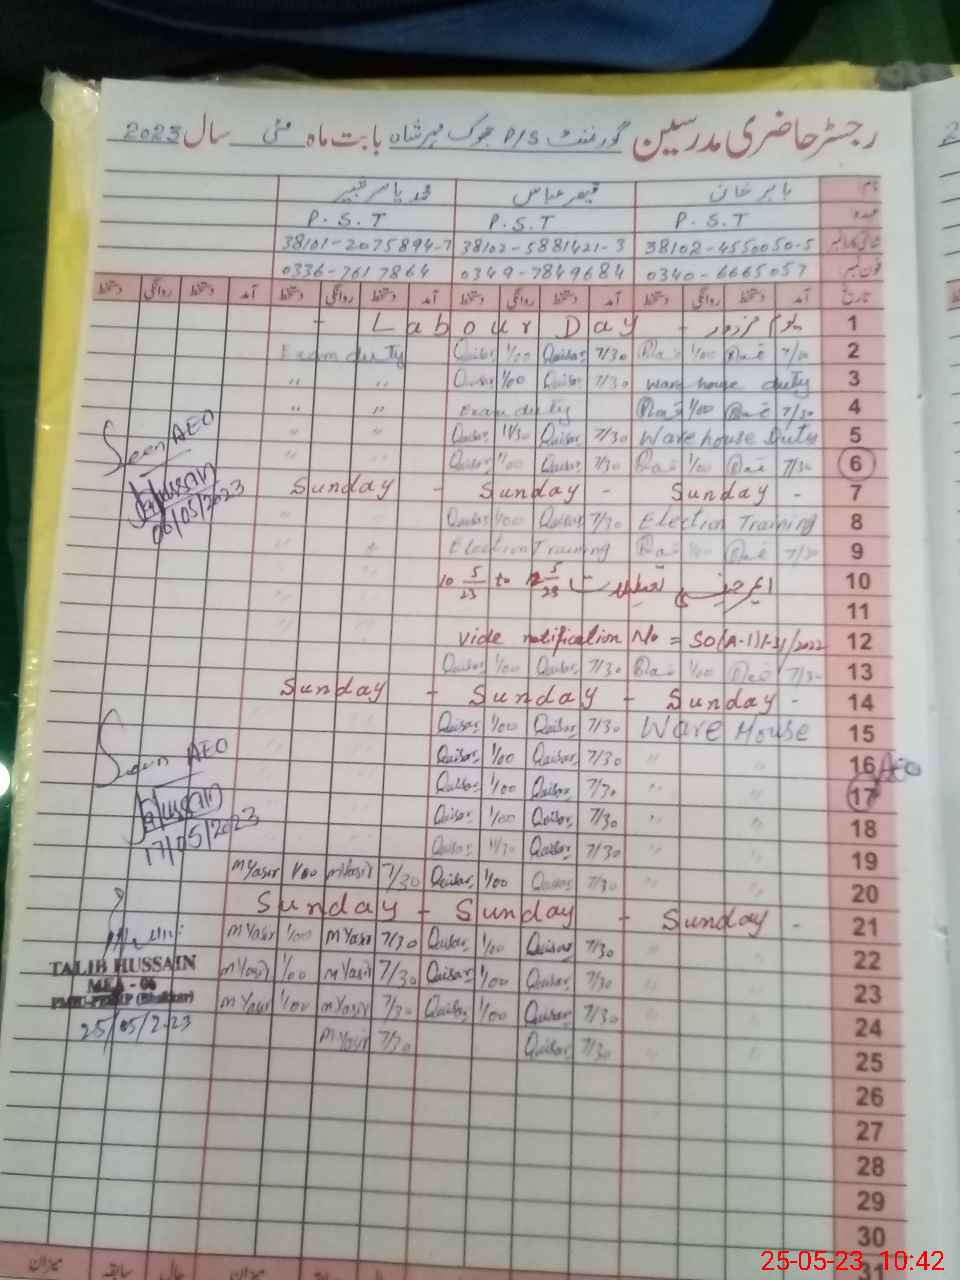 رجسٹر حاضری مدرسین گورنمنٹ P/S جوک مہر شاہ بابت ماہ مئی سال 2023
نام بابر خان قیصر عباس محمد یاسر شبیر
عہدہ P.S.T P.S.T P.S.T
38102-4550050-5 38102-5881421-3 38101-2075894-7
فون نمبر 0340-6665057 0349-7849684 0336-7617864
تاریخ آمد دستخط روانگی دستخط آمد دستخط روانگی دستخط آمد دستخط روانگی دستخط آمد دستخط روانگی دستخط
1 یوم مزدور - Labour Day -
2 7/30 1/00 Qaisar 7/30 Qaisar 1/00 Exam duty
3 ware house duty 7/30 Qaisar 1/00 Qaisar " "
4 7/30 1/00 Exam duty " "
5 Ware house Duty 7/30 Qaisar 11/30 Qaisar " "
6 7/30 1/00 7/30 Qaisar 1/00 Qaisar " "
7 Sunday - Sunday - Sunday -
8 Election Training 7/30 Qaisar 1/00 Qaisar "
9 7/30 1/00 Election Training "
10 ایمرجنسی تعطیلات 10 5/23 to 12 5/23
11
12 vide notification No = SO(A-1)1-31/2022
13 7/30 1/00 7/30 Qaisar 1/00 Qaisar
14 Sunday - Sunday - Sunday -
15 Ware House 7/30 Qaisar 1/00 Qaisar
16 " " 7/30 Qaisar 1/00 Qaisar
AEO
17 " " 7/30 Qaisar 1/00 Qaisar
18 " " 7/30 Qaisar 1/00 Qaisar
19 " " 7/30 Qaisar 11/30 Qaisar
20 " " 7/30 Qaisar 1/00 Qaisar 7/30 M Yasir 1/00 M Yasir
21 Sunday - Sunday - Sunday -
22 " " 7/30 Qaisar 1/00 Qaisar 7/30 M Yasir 1/00 M Yasir
23 " " 7/30 Qaisar 1/00 Qaisar 7/30 M Yasir 1/00 M Yasir
24 " " 7/30 Qaisar 1/00 Qaisar 7/30 M Yasir 1/00 M Yasir
25 " " 7/30 Qaisar 7/30 M Yasir
26
27
28
29
30
31
Seen AEO
06/05/2023
Seen AEO
17/05/2023
TALIB HUSSAIN
MEA - 06
(Bhakkar)
25/05/2023
میزان سابقہ حال میزان
25-05-23 10:42